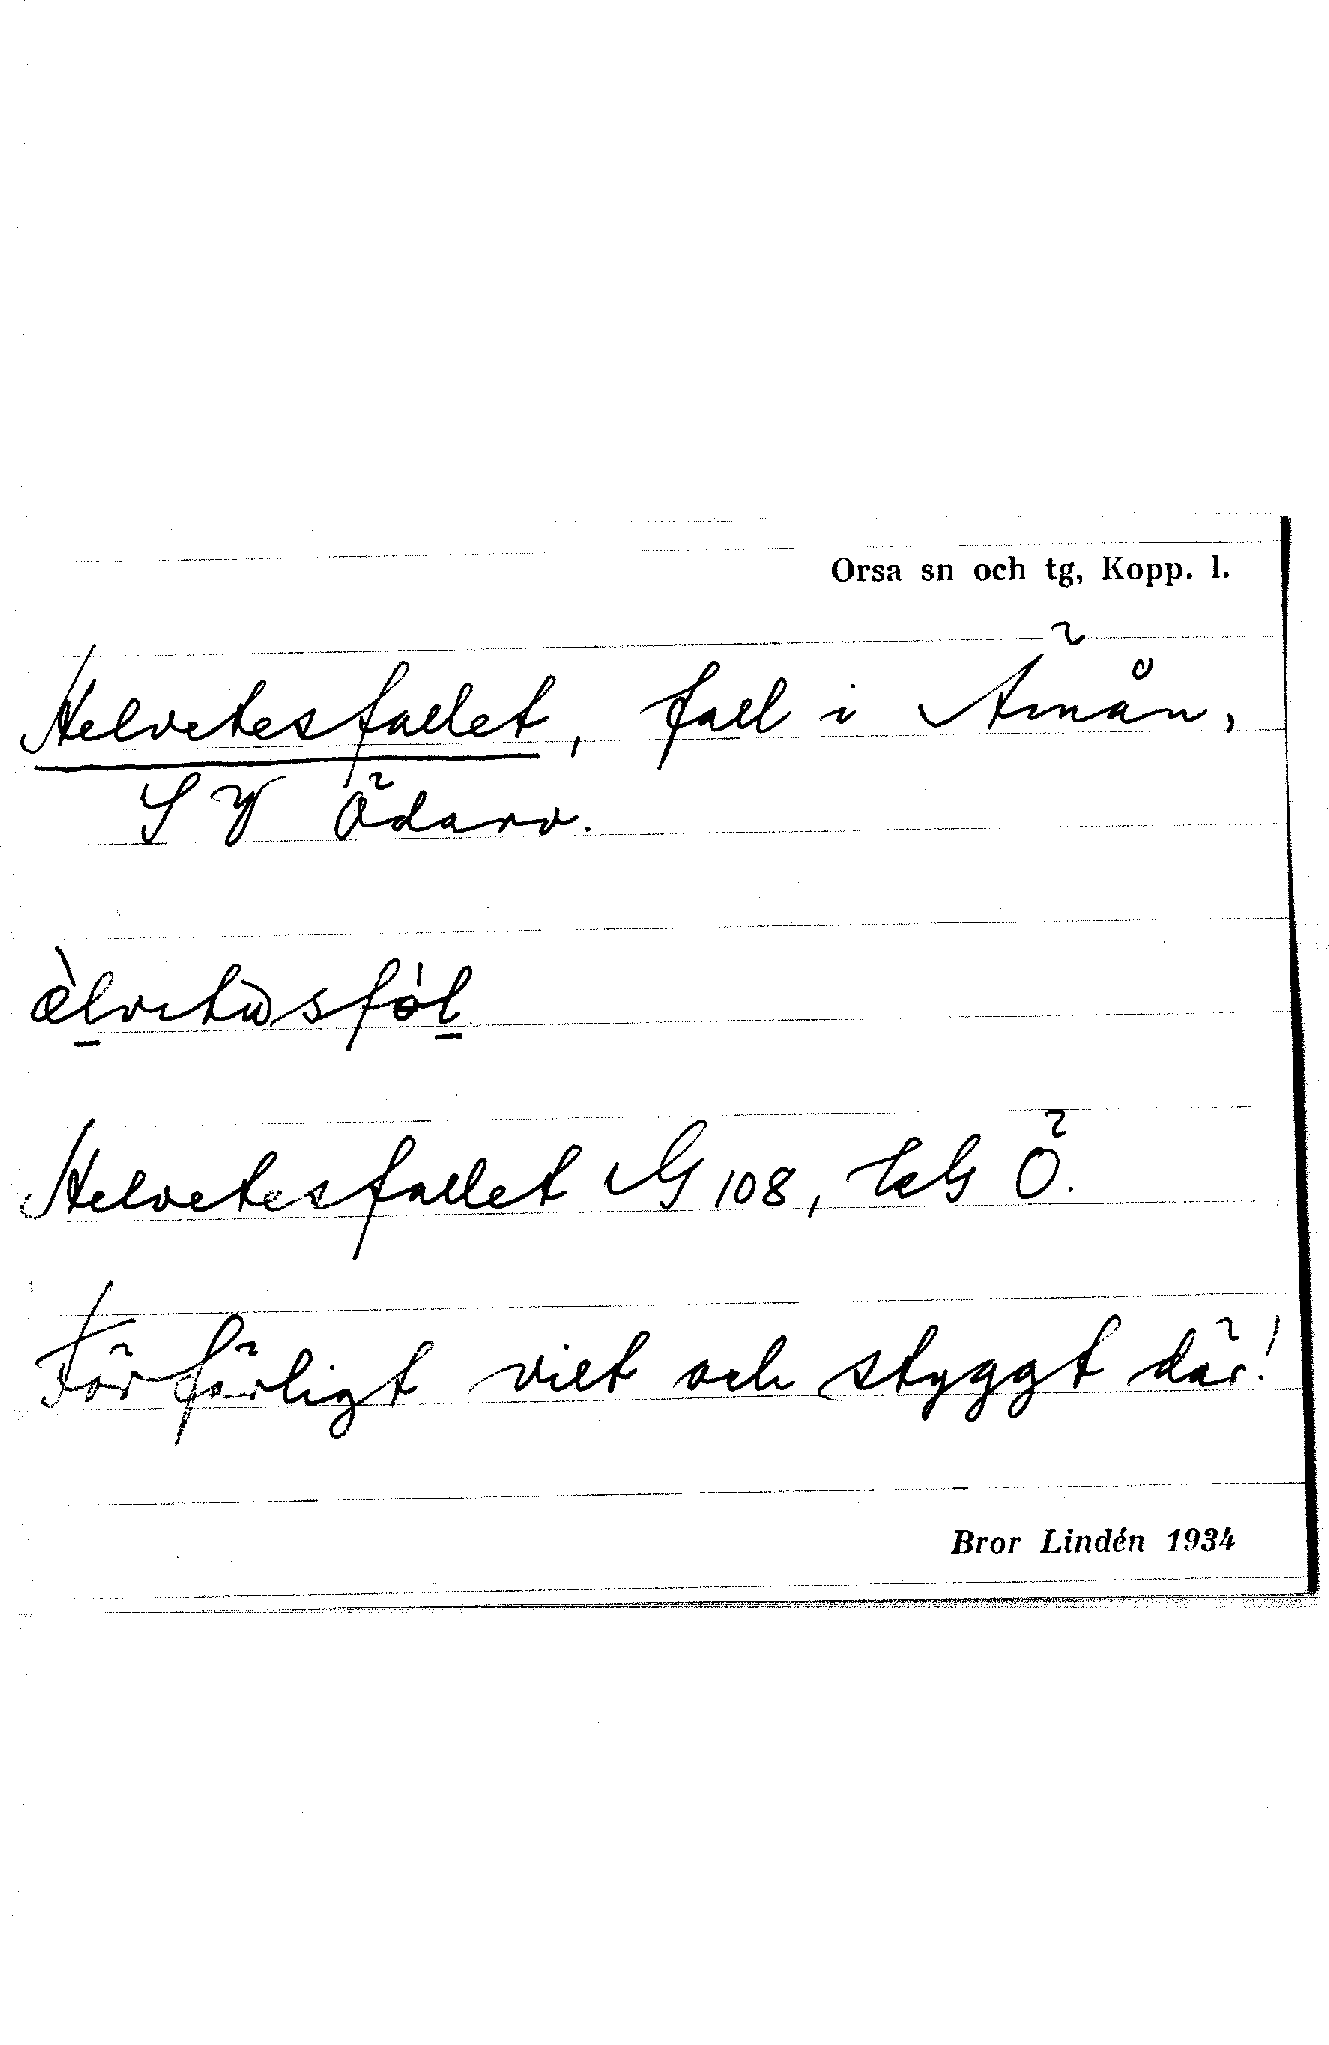 Orsa sn och tg, Kopp. l.
Helvetesfallet, fall i Ämån,
SV Ödarv.
Helvetesfallet G 108, Ö.
Förfärligt vilt och styggt där!
Bror Lindén 1934